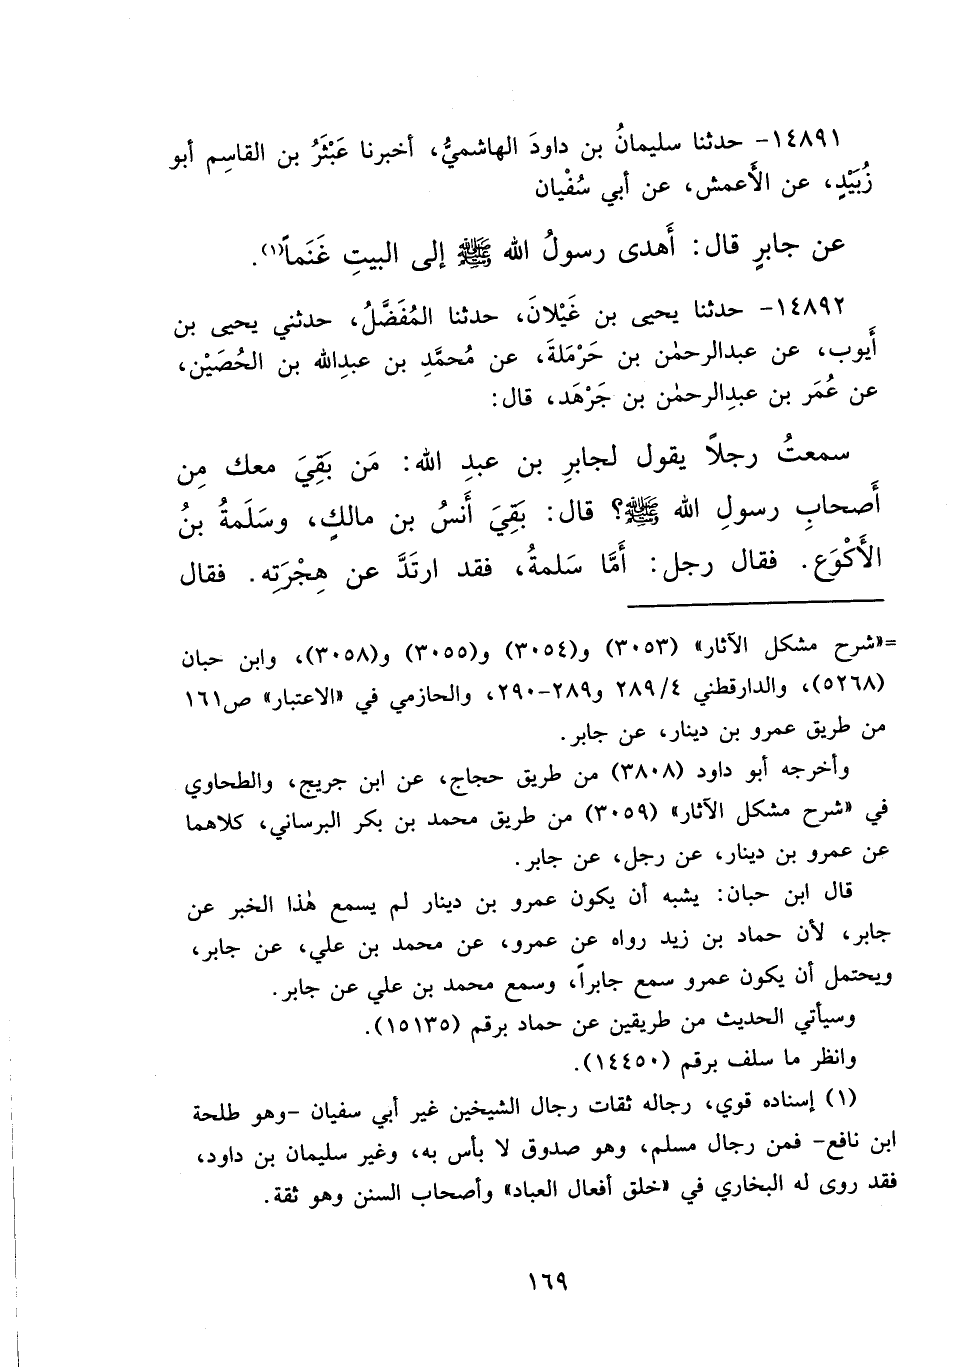 ١٤٨٩١- حدثنا سليمانُ بن داودَ الهاشميُّ، أخبرنا عَبْثَرُ بن القاسِم أبو
زُبَيْدٍ، عن الأَعمش، عن أبي سُفْيان
عن جابرٍ قال: أَهدى رسولُ الله ﷺ إلى البيتِ غَنَماً(١).
١٤٨٩٢- حدثنا يحيى بن غَيْلانَ، حدثنا المُفَضَّلُ، حدثني يحيى بن
أَيوب، عن عبدالرحمٰن بن حَرْملةَ، عن مُحمَّدِ بن عبدِالله بن الحُصَيْن،
عن عُمَر بن عبدِالرحمٰن بن جَرْهَد، قال:
سمعتُ رجلاً يقول لجابرِ بن عبدِ الله: مَن بَقِيَ معك مِن
أَصحابِ رسولِ الله ﷺ؟ قال: بَقِيَ أَنسُ بن مالكٍ، وسَلَمةُ بنُ
الأَكْوَع. فقال رجل: أَمَّا سَلمةُ، فقد ارتَدَّ عن هِجْرَتِه. فقال
=«شرح مشكل الآثار» (٣٠٥٣) و(٣٠٥٤) و(٣٠٥٥) و(٣٠٥٨)، وابن حبان
(٥٢٦٨)، والدارقطني ٢٨٩/٤ و٢٨٩-٢٩٠، والحازمي في «الاعتبار» ص١٦١
من طريق عمرو بن دينار، عن جابر.
وأخرجه أبو داود (٣٨٠٨) من طريق حجاج، عن ابن جريج، والطحاوي
في «شرح مشكل الآثار» (٣٠٥٩) من طريق محمد بن بكر البرساني، كلاهما
عن عمرو بن دينار، عن رجل، عن جابر.
قال ابن حبان: يشبه أن يكون عمرو بن دينار لم يسمع هٰذا الخبر عن
جابر، لأن حماد بن زيد رواه عن عمرو، عن محمد بن علي، عن جابر،
ويحتمل أن يكون عمرو سمع جابراً، وسمع محمد بن علي عن جابر.
وسيأتي الحديث من طريقين عن حماد برقم (١٥١٣٥).
وانظر ما سلف برقم (١٤٤٥٠).
(١) إسناده قوي، رجاله ثقات رجال الشيخين غير أبي سفيان -وهو طلحة
ابن نافع- فمن رجال مسلم، وهو صدوق لا بأس به، وغير سليمان بن داود،
فقد روى له البخاري في «خلق أفعال العباد» وأصحاب السنن وهو ثقة.
١٦٩